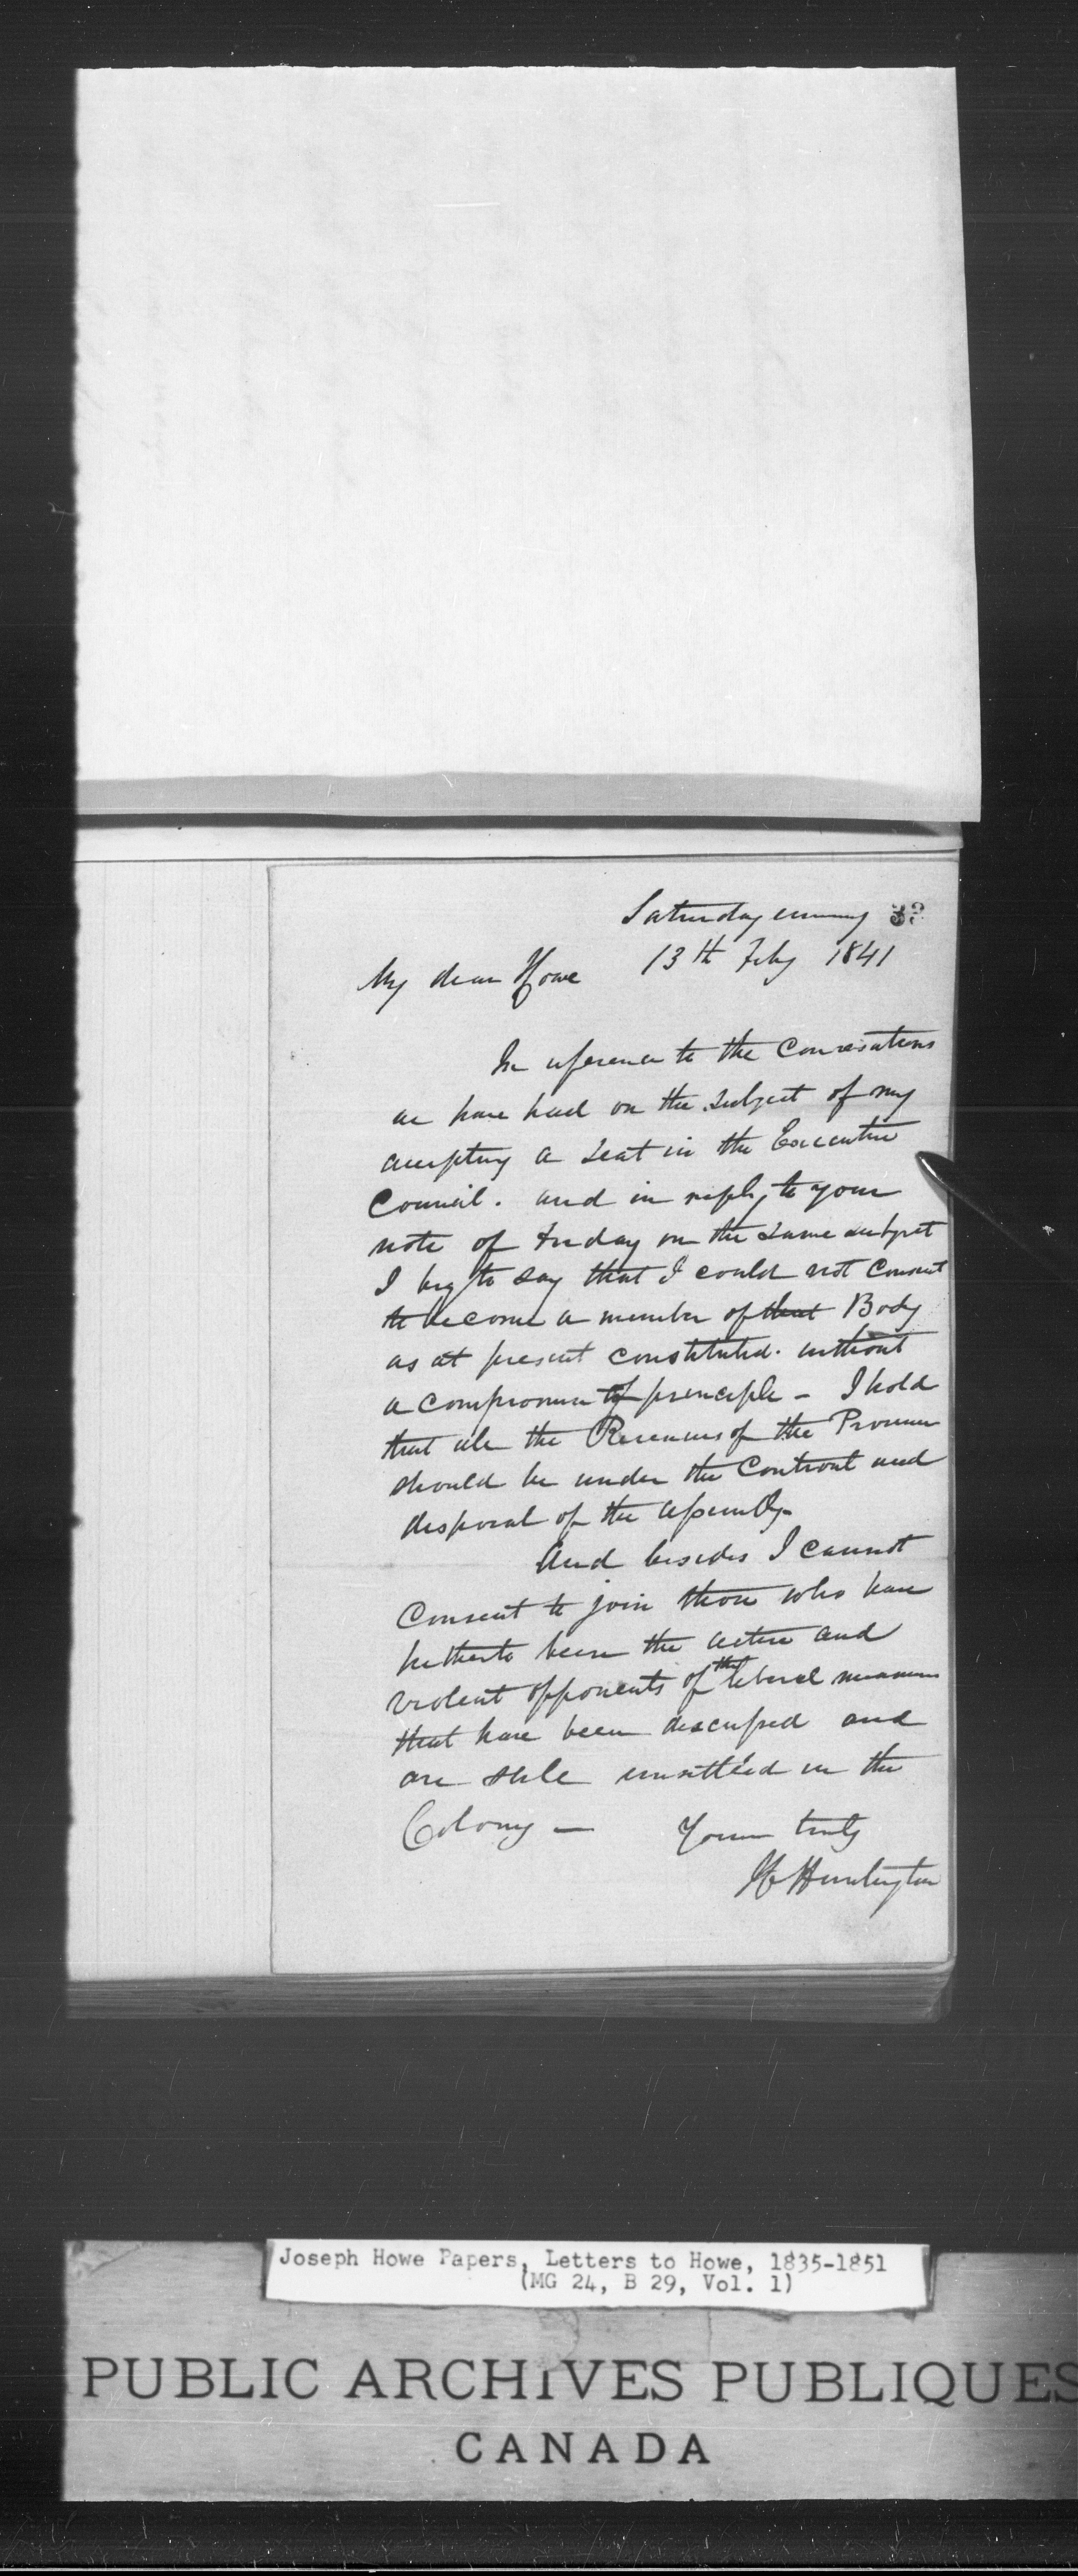 Saturday evening 32
13th Feby 1841
My dear Howe
In reference to the Conversations
we have had on the subject of my
accepting a seat in the Executive
Council. and in reply to your
note of to day on the same subject
I beg to say that I could not Consent
to become a member of that Body
as at present constituted. without
a compromise of principle - I hold
that all the Revenues of the Province
should be under the Controul and
disposal of the Assembly.
And besides I cannot
Consent to join those who have
hitherto been the active and
violent opponents of the liberal measures
that have been discussed and
are still unsettled in the
Colony — Yours truly
H Huntington
Joseph Howe Papers, Letters to Howe, 1835-1851
(MG 24, B 29, Vol. 1)
PUBLIC ARCHIVES PUBLIQUES
CANADA